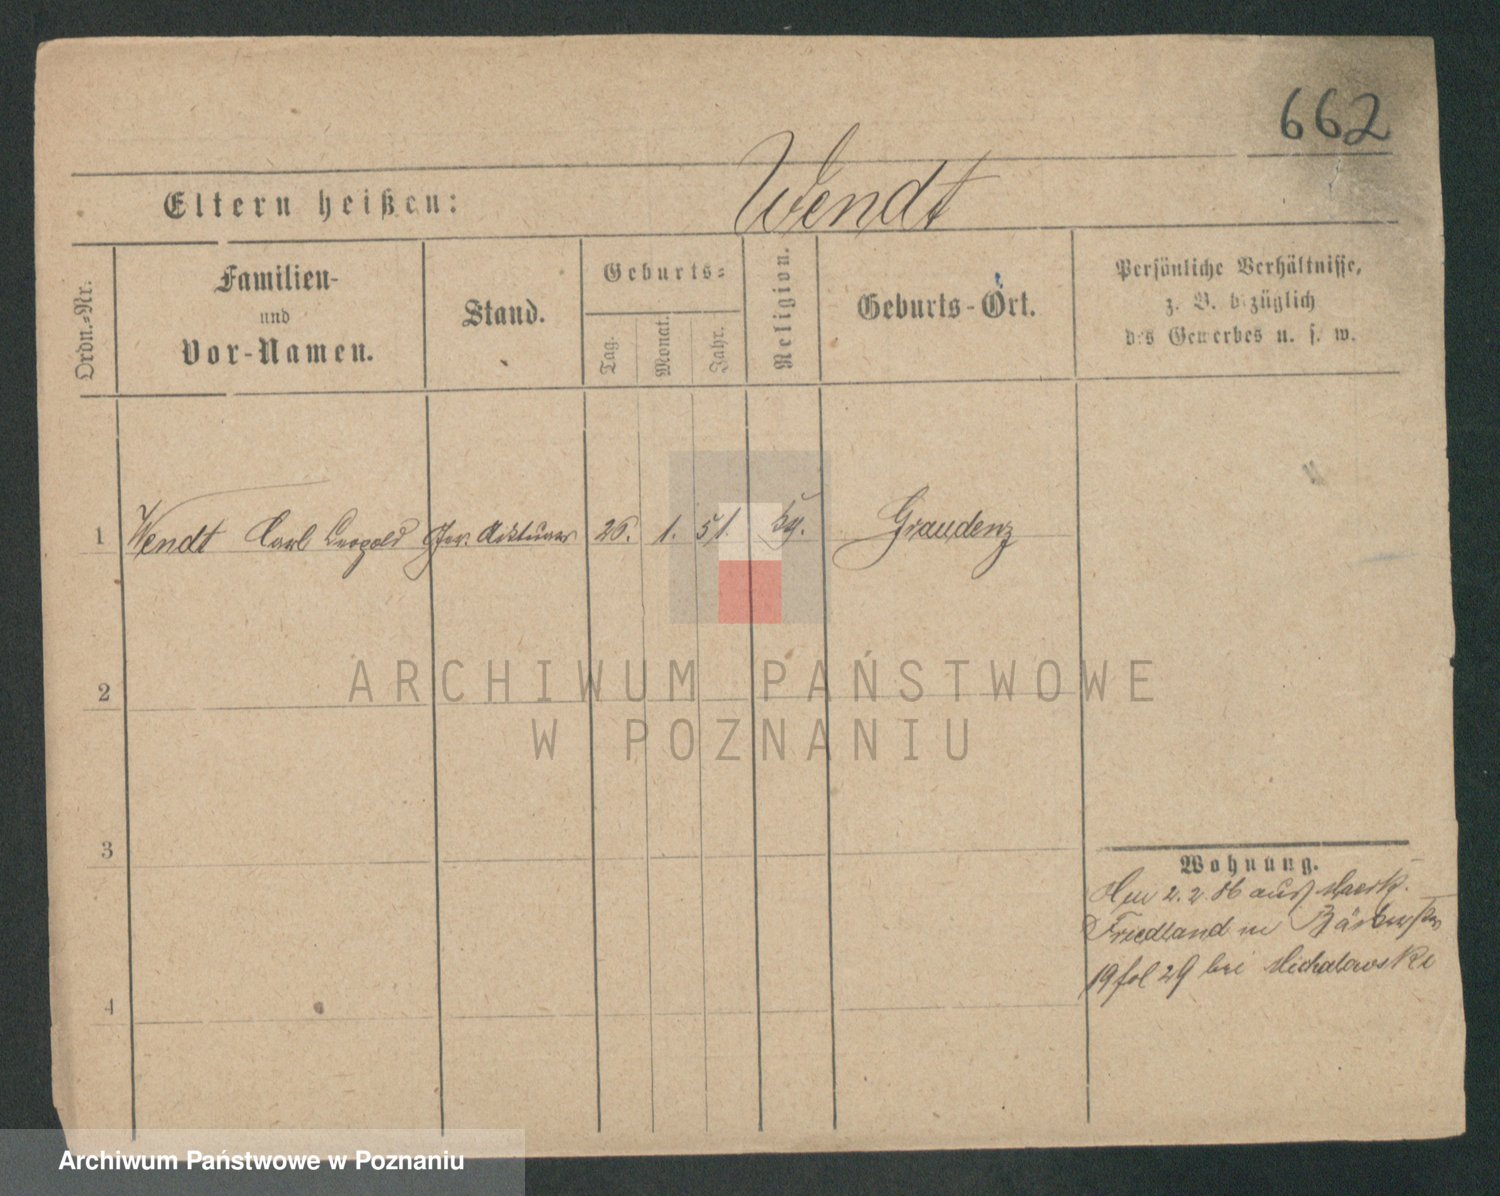 662
Eltern heißen: Wendt
Ordn.-Nr.
Familien-
und
Vor-Namen.
Stand.
Geburts-
Tag.
Monat.
Jahr.
Religion.
Geburts-Ort.
Persönliche Verhältnisse,
z. B. bezüglich
des Gewerbes u. s. w.
1 Wendt Carl Leopold Ger. Aktuar 26. 1. 51. Graudenz
2
3
4
Wohnung.
2.2.86 aus Maerk.
Friedland in
19 fol 29 bei Michalowski
ARCHIWUM PAŃSTWOWE
W POZNANIU
Archiwum Państwowe w Poznaniu